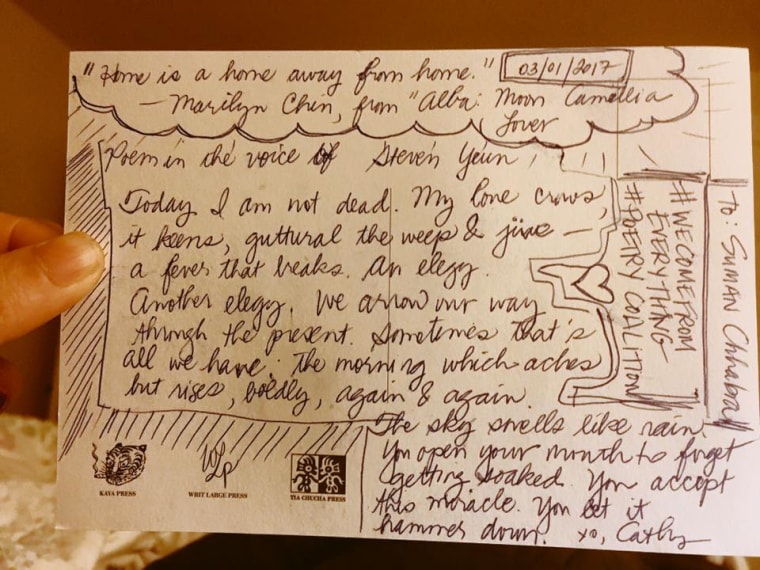 "Home is a home away from home."
03/01/2017
— Marilyn Chin, from "Alba: Moon Camellia
Lover
Poem in the voice of Steven Yeun
Today I am not dead. My crows,
it keens, guttural the weep & —
a fever that breaks. An elegy.
Another elegy. We arrow our way
through the present. Sometimes that's
all we have: The morning which aches
but rises, boldly, again & again.
The sky smells like rain.
You open your mouth to forget
getting soaked. You accept
this miracle. You let it
hammer down. xo, Cathy
#WECOMEFROM
EVERYTHING
#POETRY COALITION
To: SUMAN Chhabra
KAYA PRESS
WLP
WRIT LARGE PRESS
TIA CHUCHA PRESS